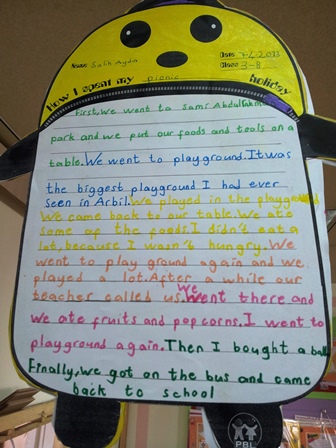 Name: Salih Aydın
Date: 7-2-2013
Class: 3-B
How I spent my picnic holiday
First,We went to Sami Abdulrahman
park and we put our foods and tools on a
table.We went to playground.It was
the biggest playground I had ever
seen in Arbil.We played in the playground
We came back to our table.We ate
some of the foods.I didn't eat a
lot,because I wasn't hungry.We
went to play ground again and we
played a lot.After a while our
teacher called us.We went there and
we ate fruits and popcorns.I went to
playground again.Then I bought a ball
Finally,we got on the bus and came
back to school
PBL